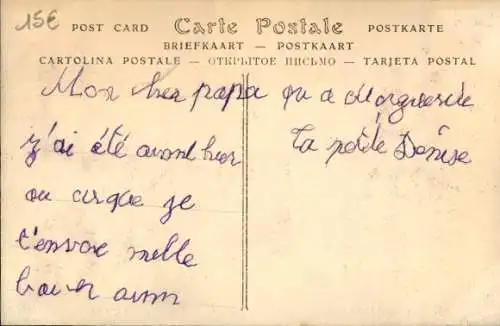 15€
POST CARD Carte Postale POSTKARTE
BRIEFKAART — POSTKAART
CARTOLINA POSTALE — ОТКРЫТОЕ ПИСЬМО — TARJETA POSTAL
Mon cher papa
j'ai été avant hier
au cirque je
t'envoie mille
baiser ainsi
qu'a Marguerite
Ta petite Denise